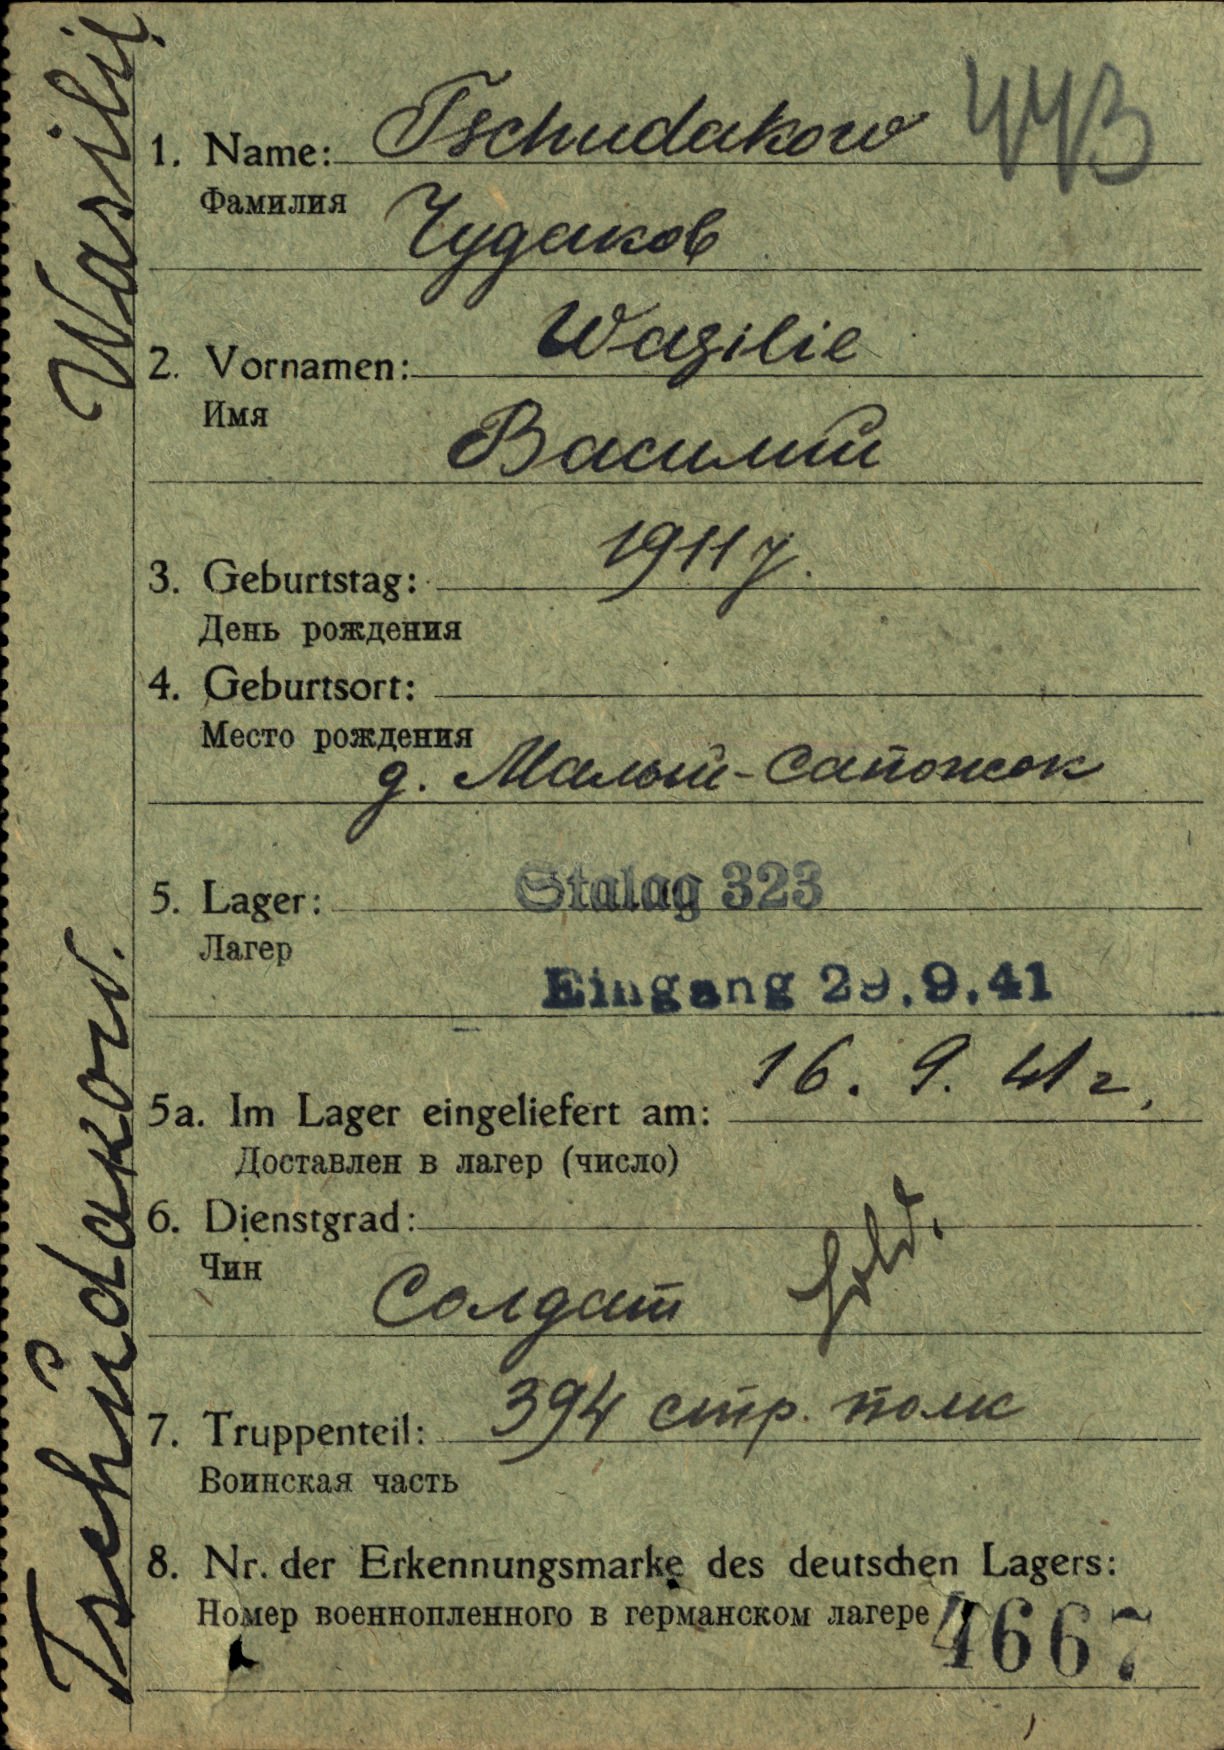 Tschudakow. Wasilij
443
1. Name: Tschudakow
Фамилия
Чудаков
2. Vornamen: Wazilie
Имя
Василий
3. Geburtstag: 1911 г.
День рождения
4. Geburtsort:
Место рождения
д. Малый-Сапожок
5. Lager: Stalag 323
Лагер
Eingang 29.9.41
5a. Im Lager eingeliefert am: 16. 9. 41 г.
Доставлен в лагер (число)
6. Dienstgrad:
Чин
Солдат Sold.
7. Truppenteil: 394 стр. полк
Воинская часть
8. Nr. der Erkennungsmarke des deutschen Lagers:
Номер военнопленного в германском лагере
4667